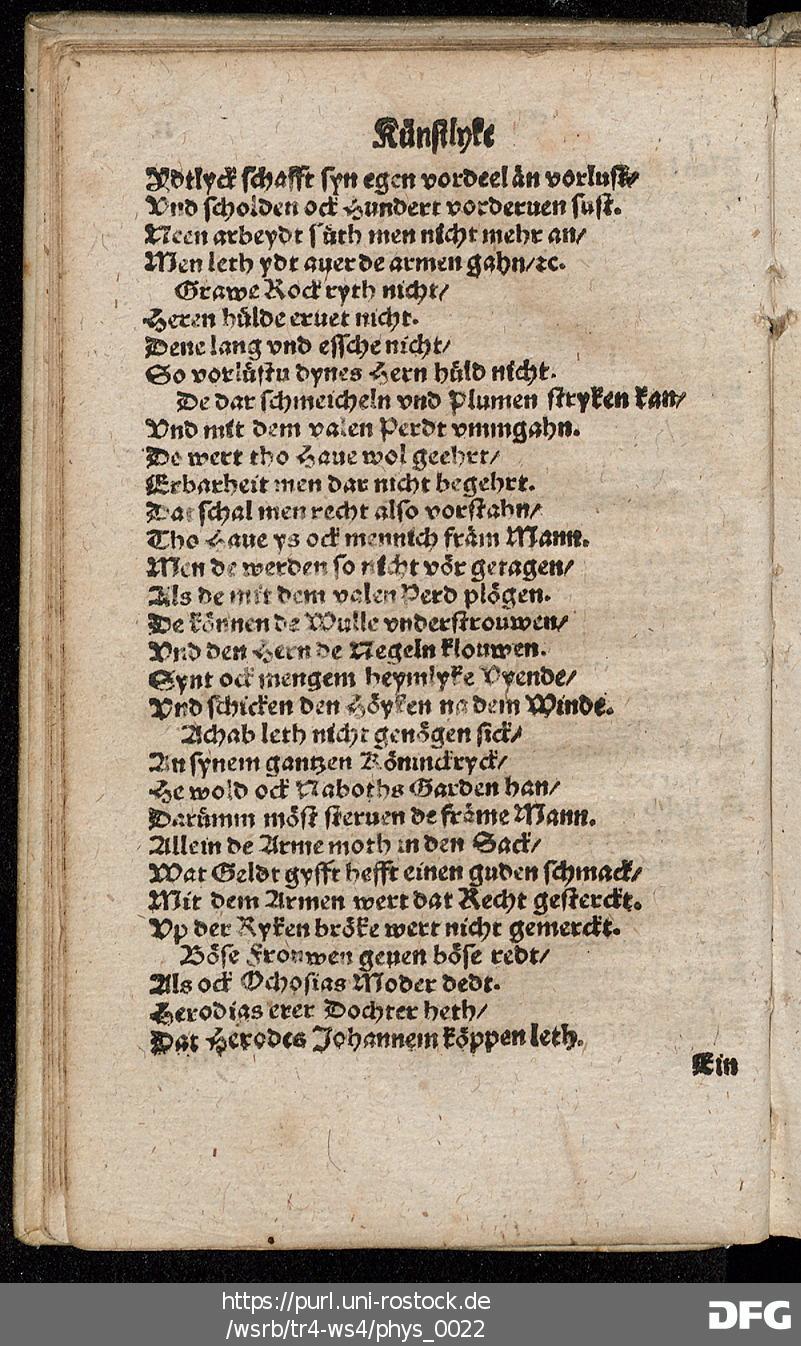 Künstlyke
Ydtlyck schafft syn egen vordeel än vorlust/
Vnd scholden ock Hundert vorderuen sust.
Neen arbeydt süth men nicht mehr an/
Men leth ydt auer de armen gahn/ꝛc.
Grawe Rock ryth nicht/
Heren hülde eruet nicht.
Dene lang vnd essche nicht/
So vorlüstu dynes Hern hüld nicht.
De dar schmeicheln vnd Plumen stryken kan/
Vnd mit dem valen Perdt vmmgahn.
De wert tho Haue wol geehrt/
Erbarheit men dar nicht begehrt.
Dat schal men recht also vorstahn/
Tho Haue ys ock mennich främ Mann.
Men de werden so nicht vör getagen/
Als de mit dem valen Perd plögen.
De können de Wulle vnderstrouwen/
Vnd den Hern de Negeln klouwen.
Synt ock mengem heymlyke Vyende/
Vnd schicken den Höyken na dem Winde.
Achab leth nicht genögen sick/
An synem gantzen Köninckryck/
He wold ock Naboths Garden han/
Darümm möst steruen de främe Mann.
Allein de Arme moth in den Sack/
Wat Geldt gyfft hefft einen guden schmack/
Mit dem Armen wert dat Recht gesterckt.
Vp der Ryken bröke wert nicht gemerckt.
Böse Frouwen geuen böse redt/
Als ock Ochosias Moder dedt.
Herodias erer Dochter heth/
Dat Herodes Johannem köppen leth.
Ein
https://purl.uni-rostock.de
/wsrb/tr4-ws4/phys_0022
DFG